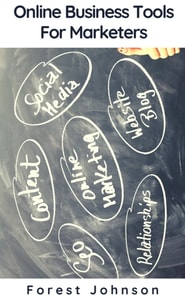 Online Business Tools
For Marketers
Social
Media
Website
Blog
Content
Online
Marketing
Seo
Relationships
Forest Johnson